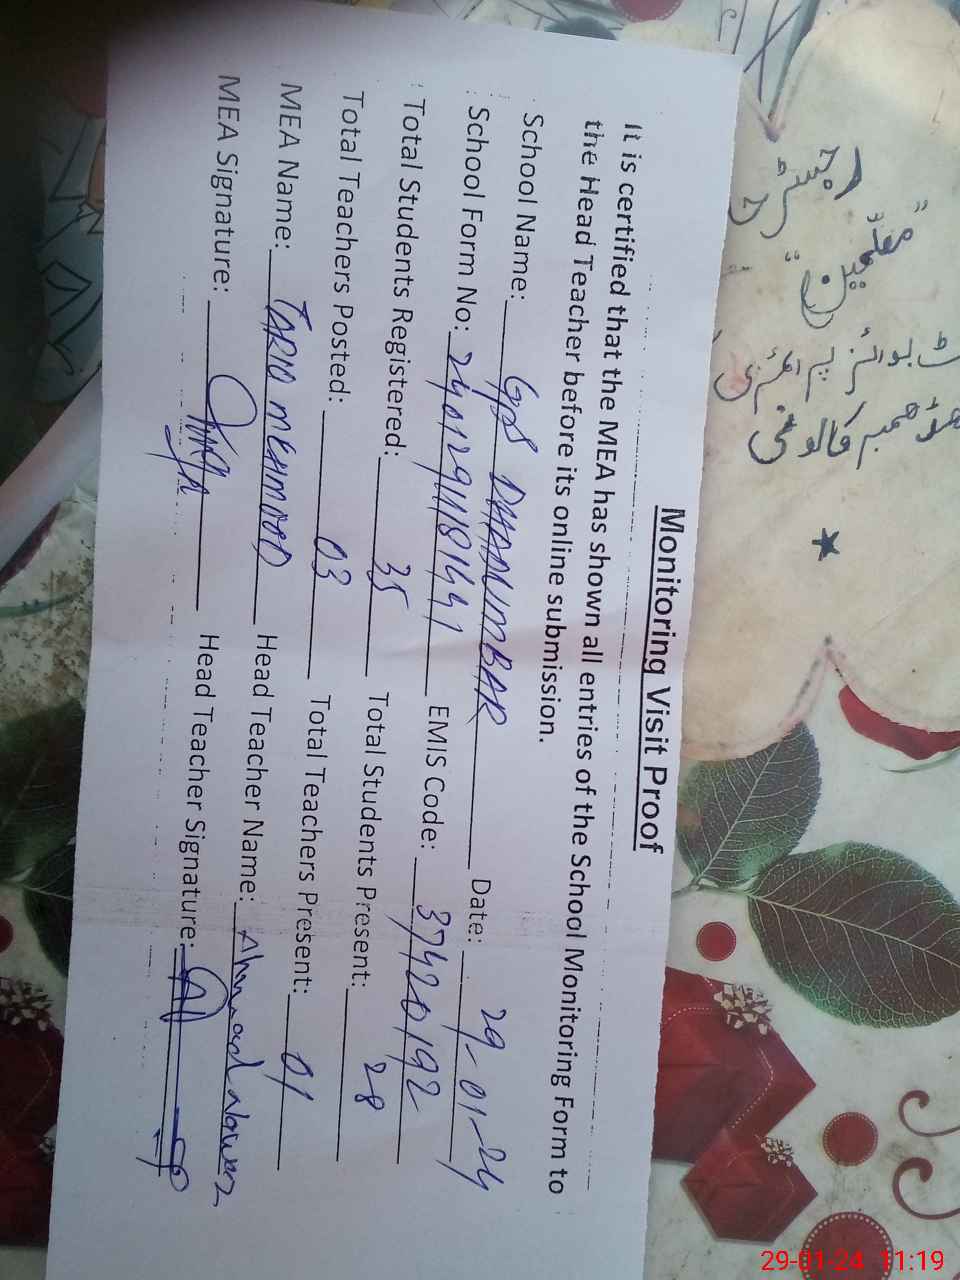 Monitoring Visit Proof
It is certified that the MEA has shown all entries of the School Monitoring Form to
the Head Teacher before its online submission.
School Name: GPS DHADUMBAR Date: 29-01-24
School Form No: EMIS Code: 37420192
Total Students Registered: 35 Total Students Present: 28
Total Teachers Posted: 03 Total Teachers Present: 01
MEA Name: TARIQ MEHMOOD Head Teacher Name: Ahmad Nawaz
MEA Signature: Head Teacher Signature:
رجسٹر
معلمین
بوائز پرائمری
29-01-24 11:19